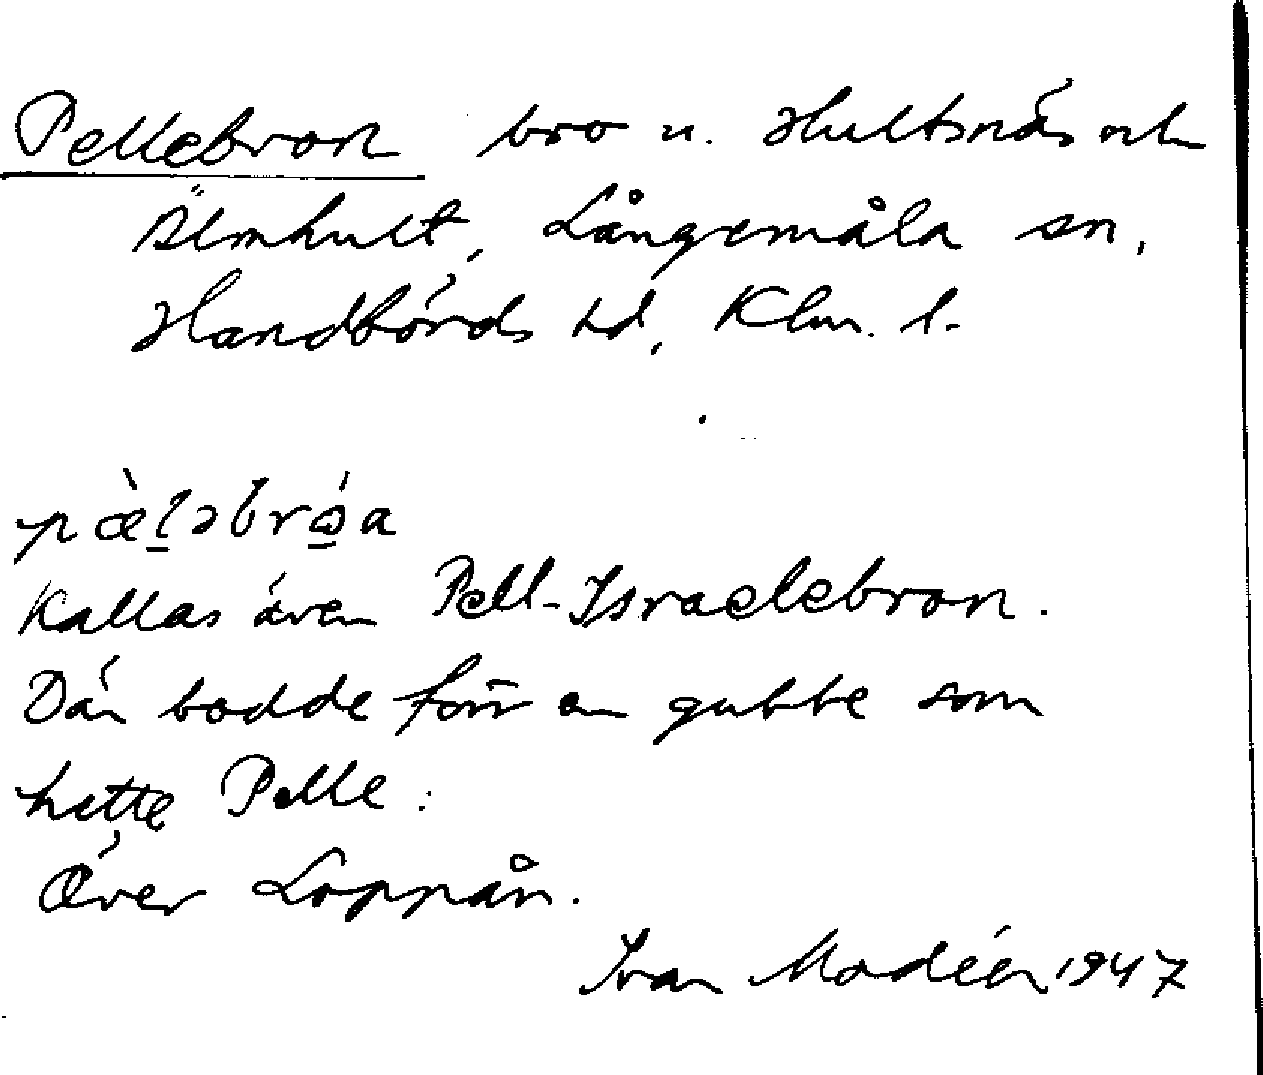 Pellebron bro u. Hultsnäs och
Älmhult, Långemåla sn,
Handbörds hd, Klm. l.
pæ̀l̠əbrɷ̠́a
Kallas även Pell-Israelebron.
Där bodde förr en gubbe som
hette Pelle.
Över Loppån.
Ivar Modéer 1947